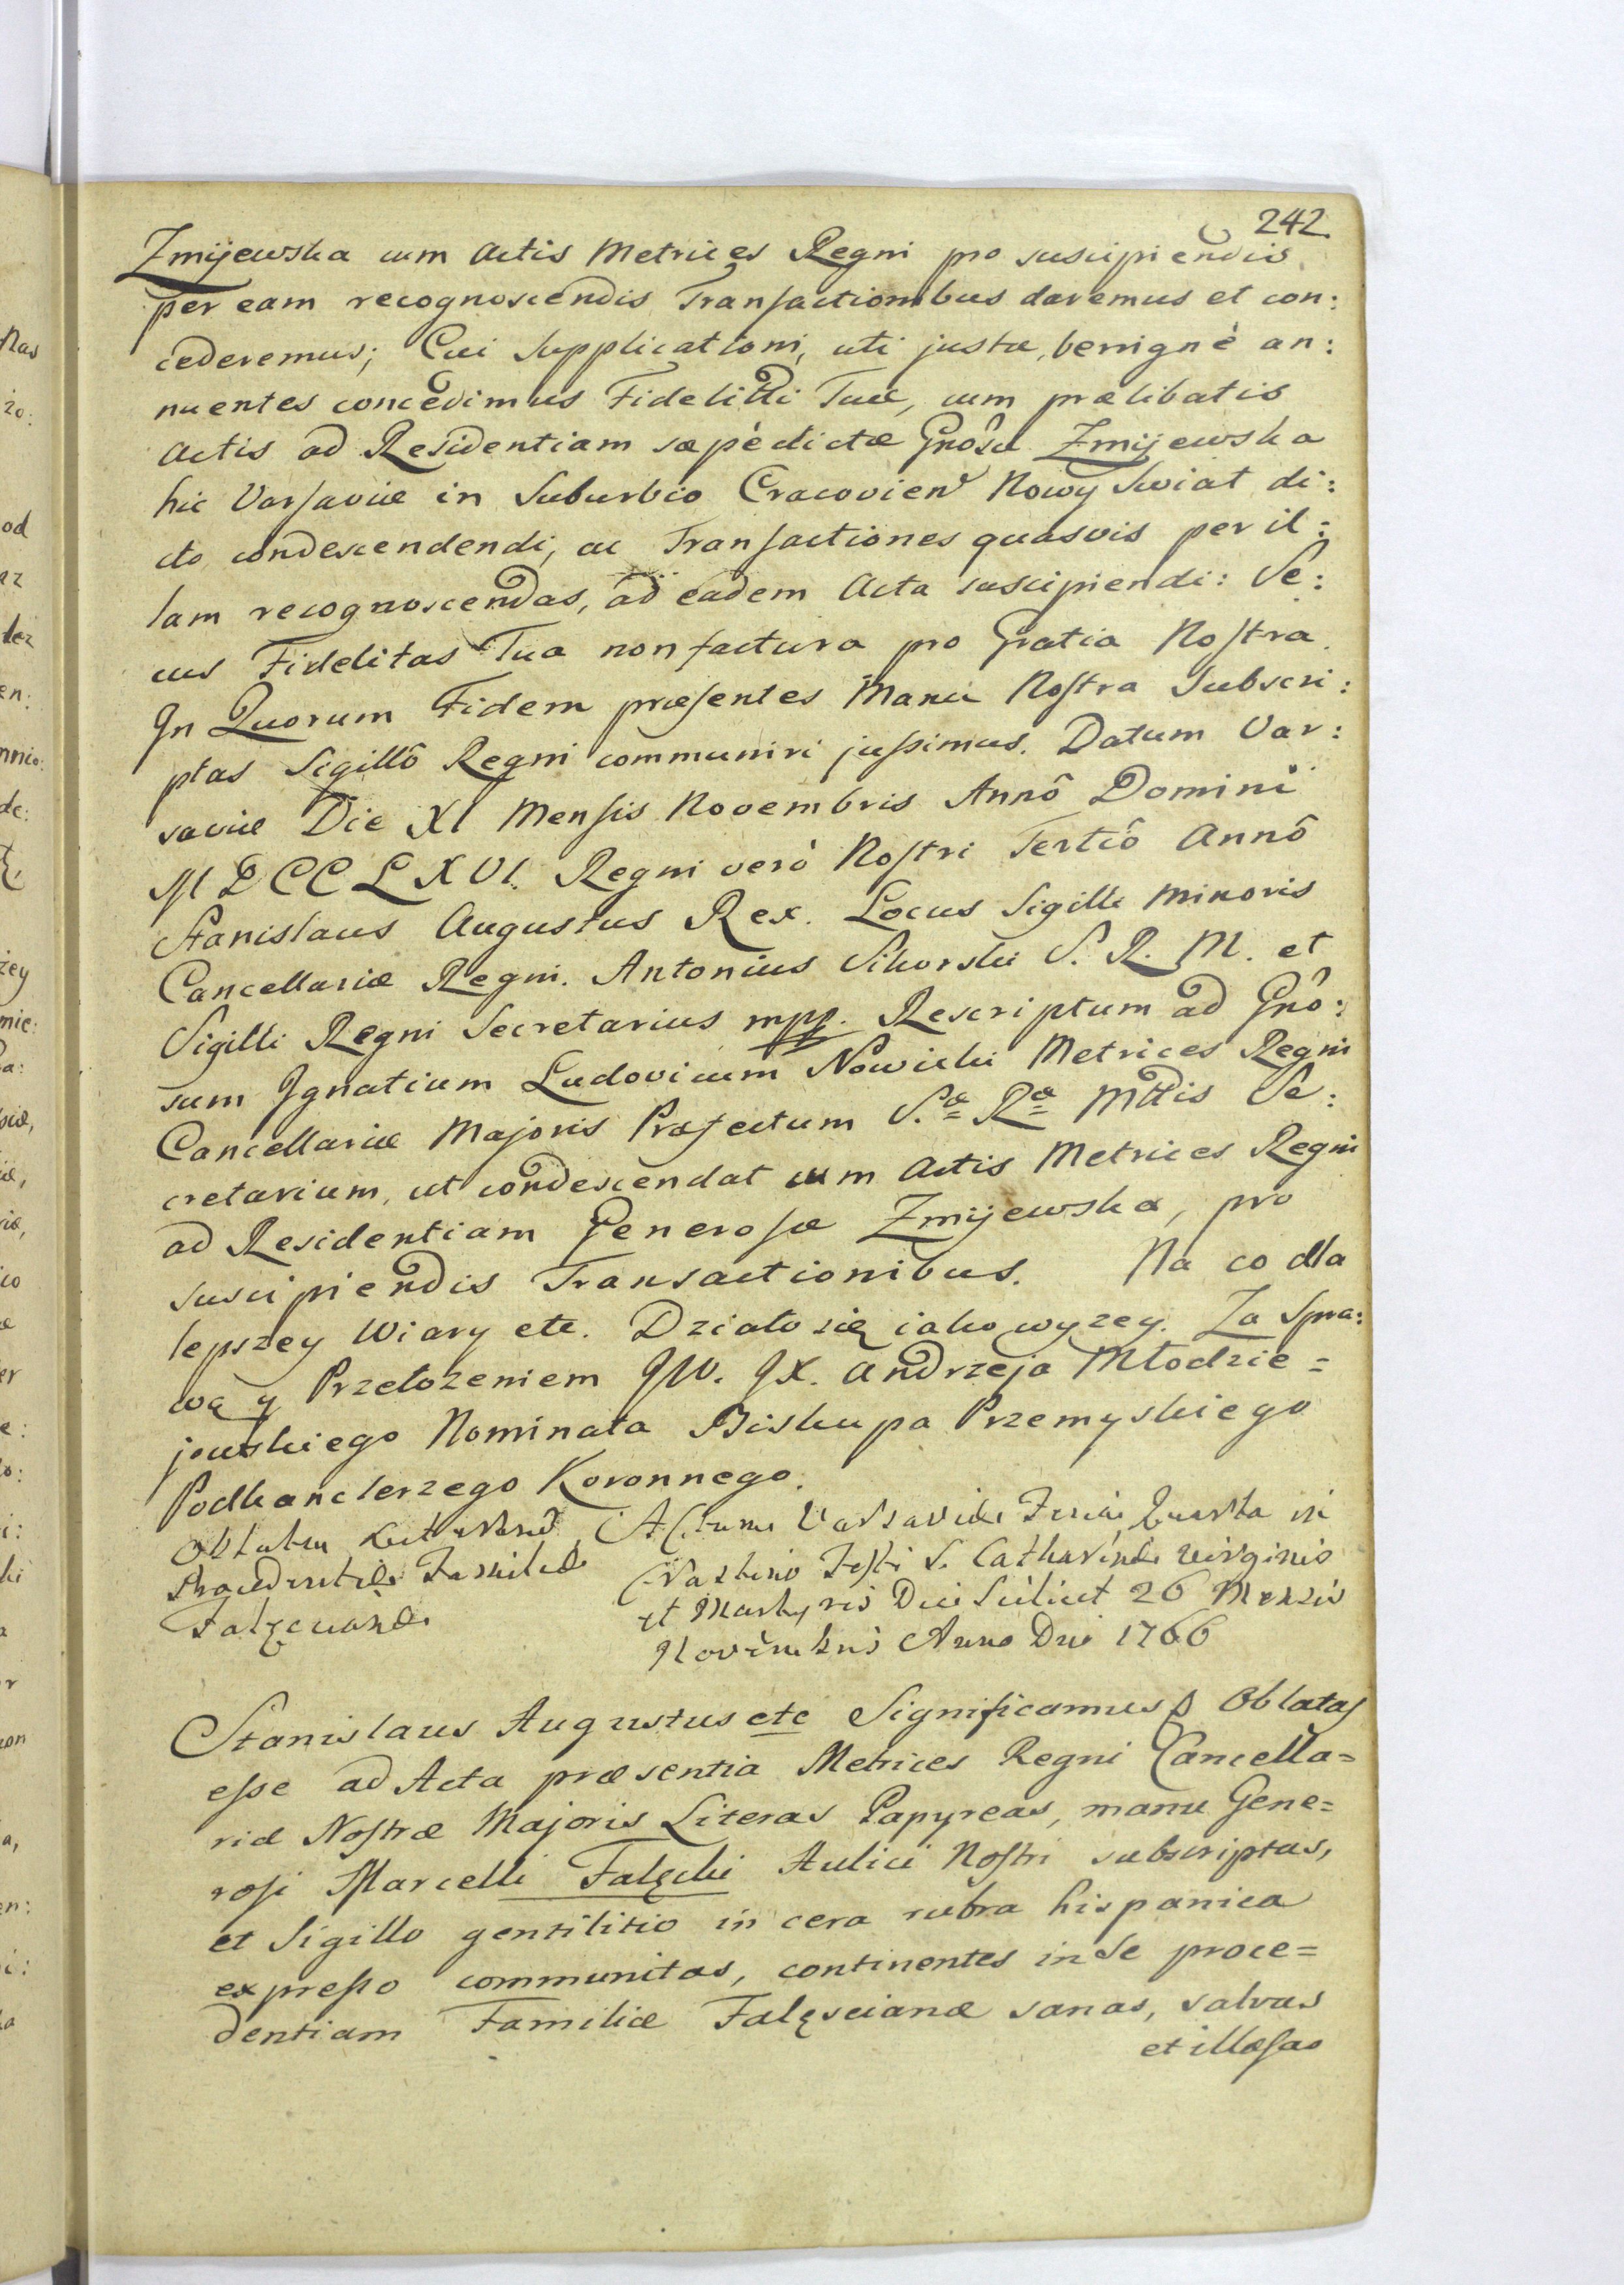 242
Zmijewska cum Actis Metrices Regni pro suscipiendis
per eam recognoscendis Transactionibus daremus et con:
cederemus; Cui Supplicationi, uti justæ, benignè an:
nuentes concedimus Fidelitti Tuæ, cum prælibatis
Actis ad Residentiam sæpèdictæ Gnôsæ Zmijewska
hic Varsaviæ in Suburbio Cracovien Nowy Swiat di:
cto condescendendi, ac Transactiones quasvis per il:
lam recognoscendas, ad eadem Acta suscipiendi: Se:
cus Fidelitas Tua non factura pro Gratia Nostra.
In Quorum Fidem præsentes Manu Nostra Subscri:
ptas Sigillô Regni communiri jussimus. Datum Var:
saviæ Die XI Mensis Novembris Annô Domini
MDCCLXVI. Regni verò Nostri Tertiô Annô
Stanislaus Augustus Rex. Locus Sigilli Minoris
Cancellariæ Regni. Antonius Sikorski S. R. M. et
Sigilli Regni Secretarius mpp. Rescriptum ad Gnô:
sum Ignatium Ludovicum Nowicki Metrices Regni
Cancellariæ Majoris Præfectum S.æ Ræ Mttis Se:
cretarium, ut condescendat cum Actis Metrices Regni
ad Residentiam Generosæ Zmijewska, pro
suscipiendis Transactionibus. Na co dla
lepszey Wiary etc. Działo się iako wyzey. Za Spra:
wą y Przełozeniem JW. JX. Andrzeja Młodzie=
jowskiego Nominata Biskupa Przemyskiego
Podkanclerzego Koronnego.
Oblata
Procedentiæ Familiæ
Falęcianæ
Actum Varsaviæ Feria Quarta in
Crastino Festi S. Catharinæ Virginis
et Martyris Die Scilicet 26 Mensis
Novembris Anno Dni 1766
Stanislaus Augustus etc Significamus Oblatas
esse ad Acta præsentia Metrices Regni Cancella=
riæ Nostræ Majoris Literas Papyreas, manu Gene=
rosi Marcelli Falęcki Aulici Nostri subscriptas,
et Sigillo gentilitio in cera rubra hispanica
expresso communitas, continentes in Se proce=
dentiam Familiæ Falęscianæ sanas, salvas
et illæsas